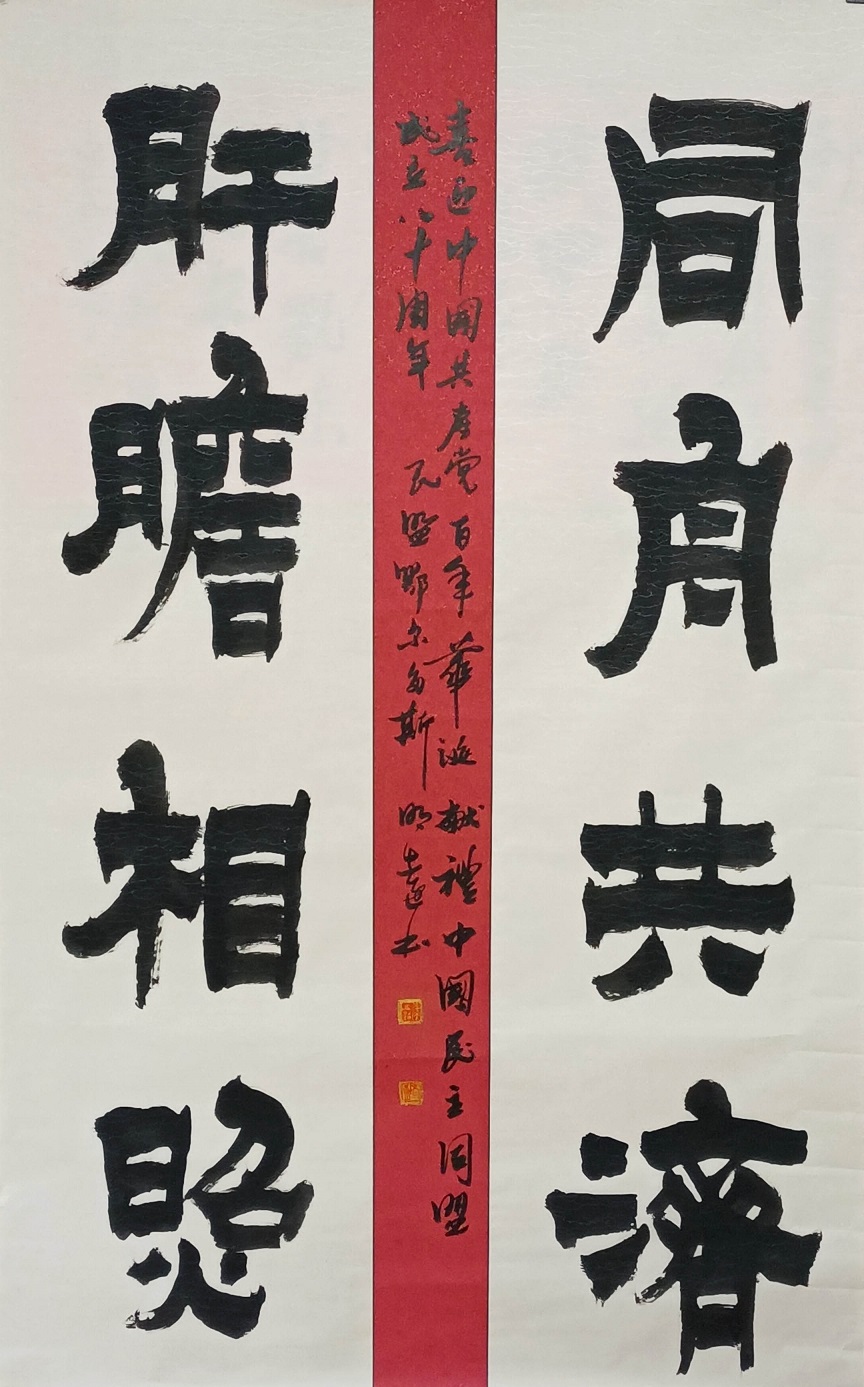 同舟共濟
喜迎中国共产党百年華诞献禮中國民主同盟
成立八十周年 民盟鄂尔多斯 明遠书
肝膽相照